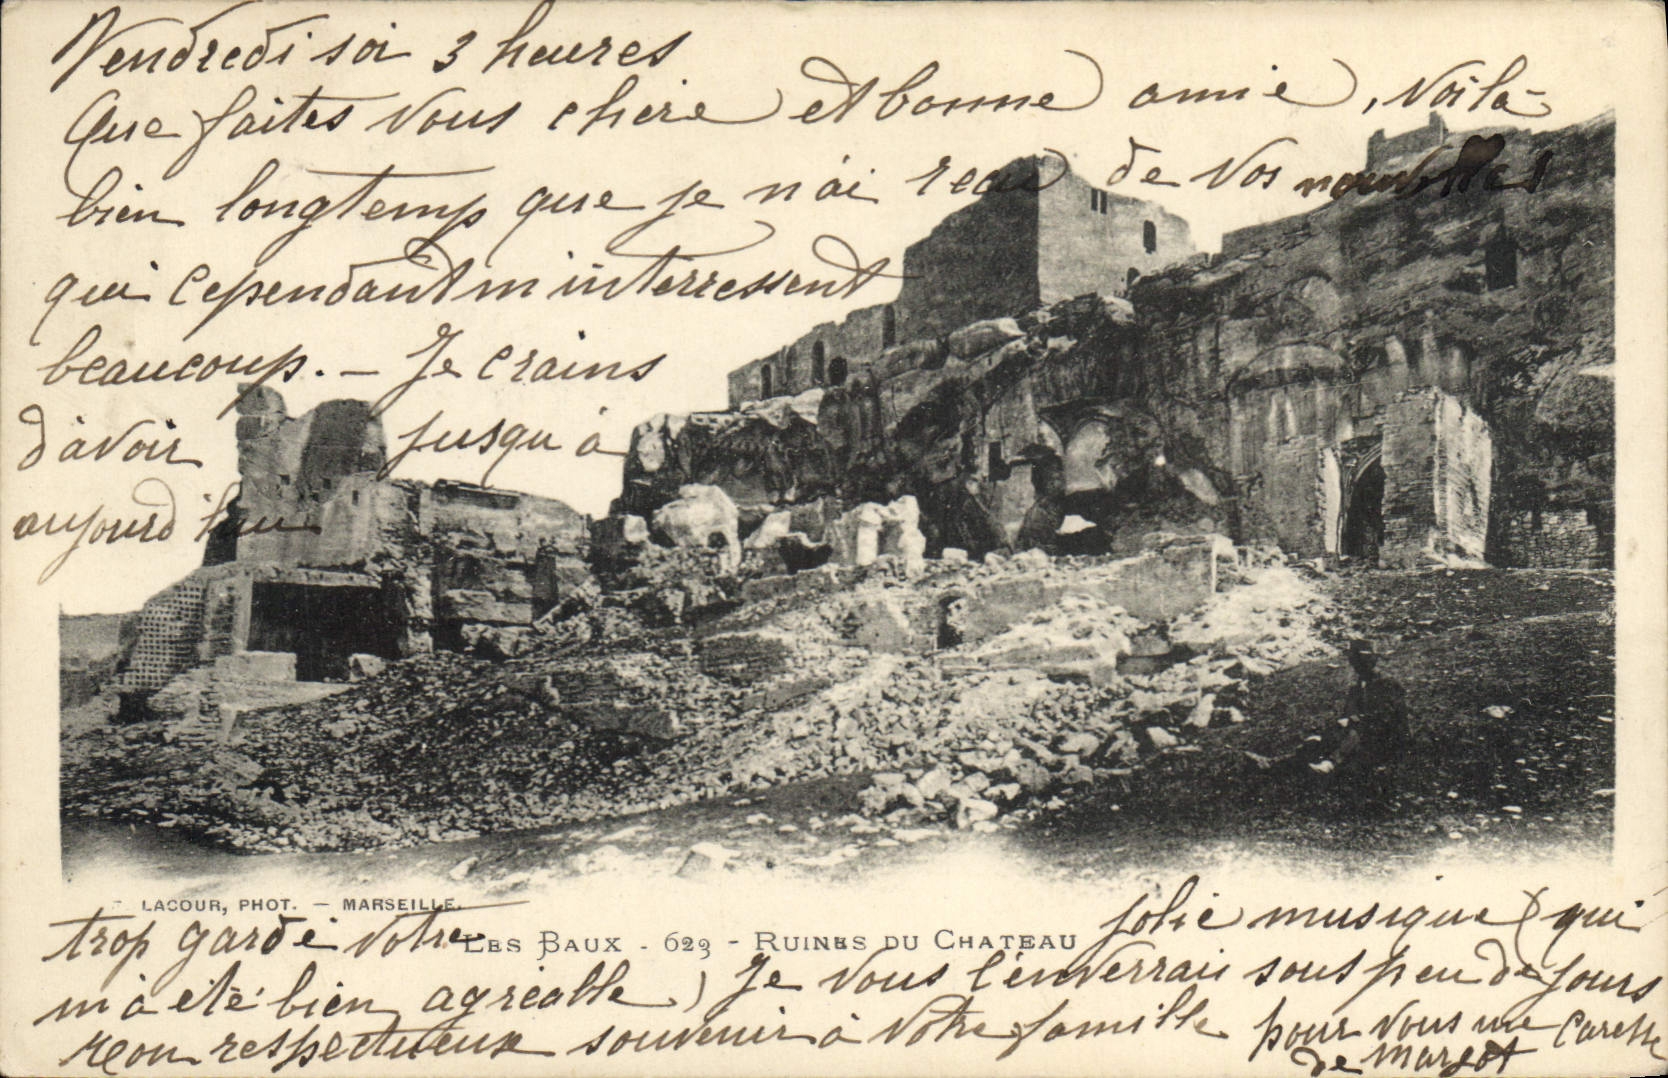 Vendredi soi 3 heures
Que faites vous chère et bonne amie, voilà
bien longtemps que je n'ai recu de vos nouvelles
qui cependant m'interressent
beaucoup. — Je crains
d'avoir jusqu'à
aujourd'hui
F. LACOUR, PHOT. — MARSEILLE.
LES BAUX - 623 - RUINES DU CHATEAU
trop gardé votre jolie musique (qui
m'a été bien agréable) Je vous l'enverrai sous peu de jours
mon respectueux souvenir à votre famille pour vous une caresse
de Margot